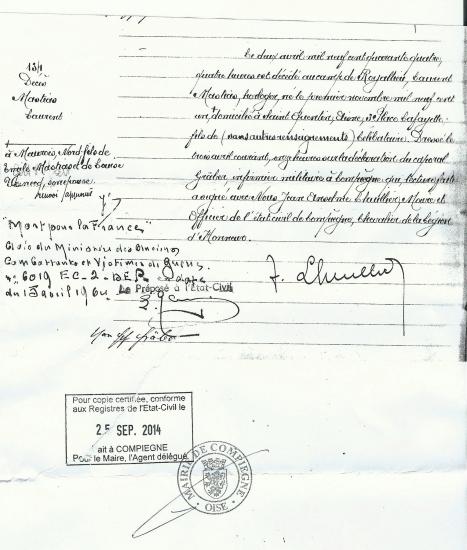 131
Décès
Mastrais
Laurent
à Maurois, Nord fils de
Emile
"Mort pour la France"
Avis du Ministère des Anciens
Combattants et Victimes de Guerre
n° 6019 EC-2-DER date
du 13 avril 1964
Le Préposé à l'Etat-Civil
Le deux avril mil neuf cent quarante quatre,
quatre heures est décédé au camp de Royallieu, Laurent
Mastrais, horloger, né le premier novembre mil neuf cent
un, domicilié à Saint Quentin, Aisne, 13 Place Lafayette
fils de (sans autres renseignements) Célibataire. Dressé le
trois avril courant, onze heures sur la déclaration du caporal
Gräber, infirmier militaire à Compiègne qui, lecture faite
a signé avec Nous, Jean Anselme Lhuillier, Maire et
Officier de l'état civil de Compiègne, Chevalier de la Légion
d'Honneur.
Pour copie certifiée, conforme
aux Registres de l'Etat-Civil le
25 SEP. 2014
ait à COMPIEGNE
Pour le Maire, l'Agent délégué
MAIRIE DE COMPIEGNE
OISE